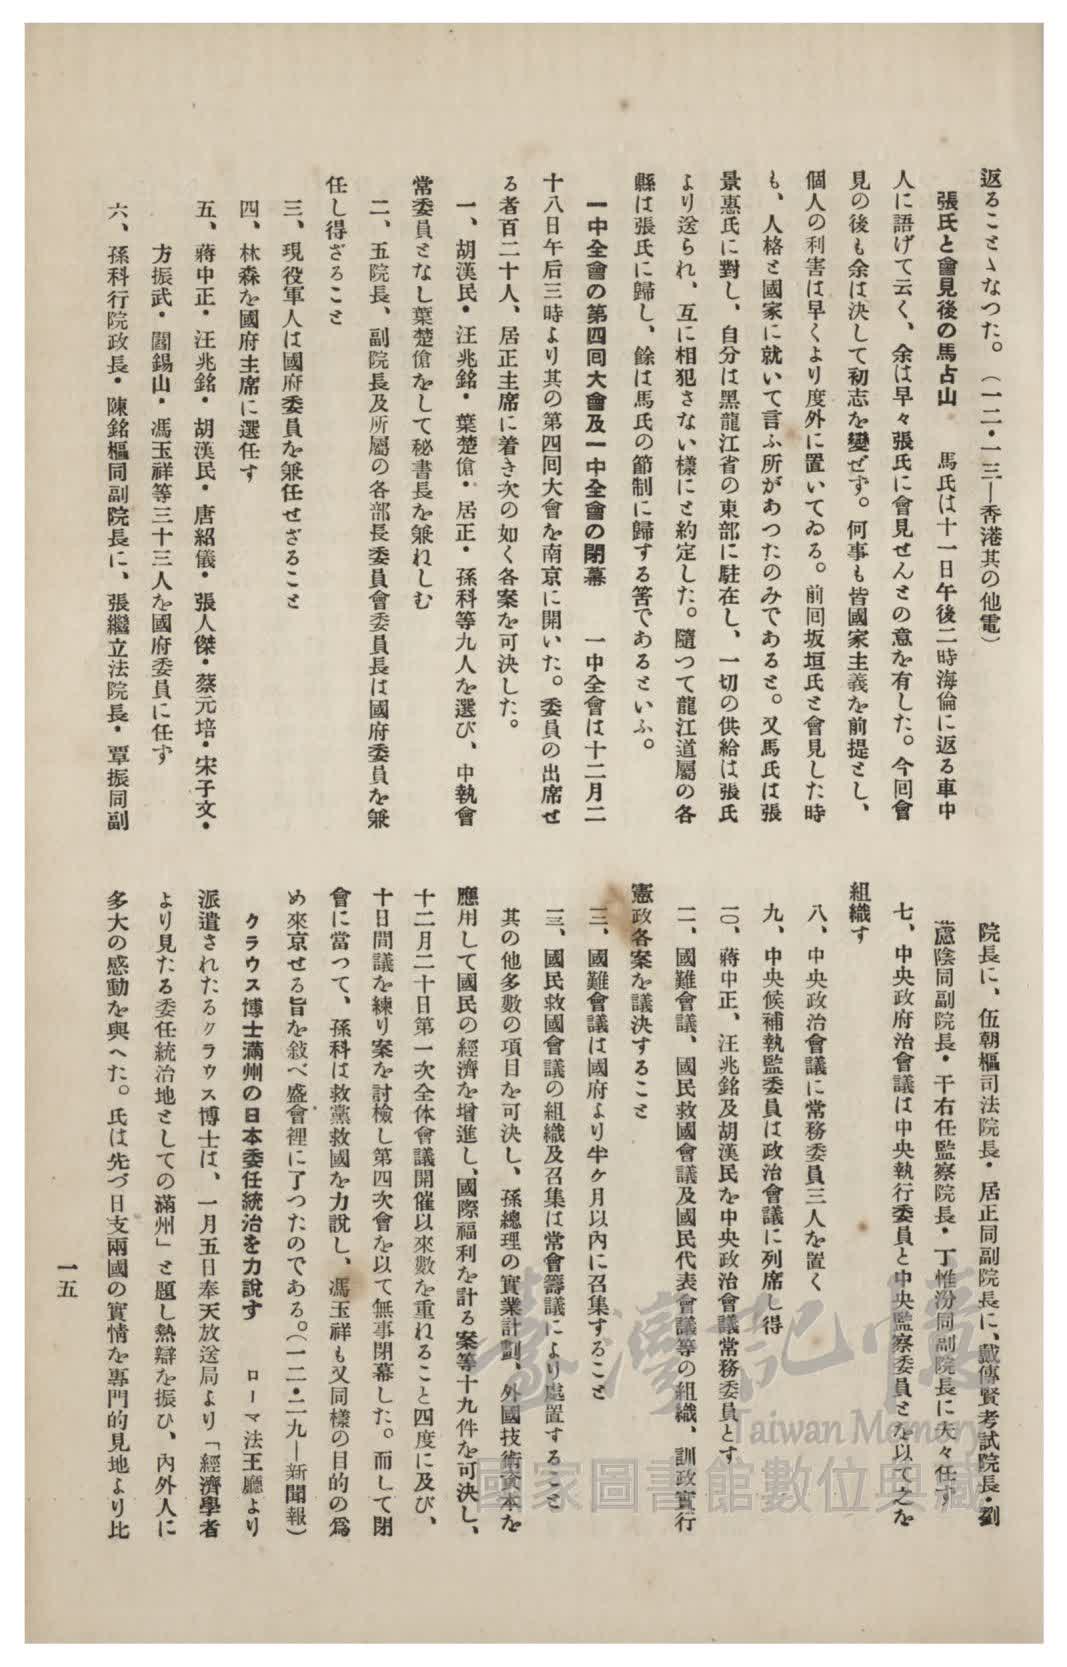 返ることゝなつた。（一二・一三―香港其の他電）
張氏と會見後の馬占山　馬氏は十一日午後二時海倫に返る車中
人に語げて云く、余は早々張氏に會見せんとの意を有した。今回會
見の後も余は決して初志を變ぜず。何事も皆國家主義を前提とし、
個人の利害は早くより度外に置いてゐる。前回坂垣氏と會見した時
も、人格と國家に就いて言ふ所があつたのみであると。又馬氏は張
景惠氏に對し、自分は黑龍江省の東部に駐在し、一切の供給は張氏
より送られ、互に相犯さない樣にと約定した。隨つて龍江道屬の各
縣は張氏に歸し、餘は馬氏の節制に歸する筈であるといふ。
一中全會の第四回大會及一中全會の閉幕　一中全會は十二月二
十八日午后三時より其の第四回大會を南京に開いた。委員の出席せ
る者百二十人、居正主席に着き次の如く各案を可決した。
一、胡漢民・汪兆銘・葉楚傖・居正・孫科等九人を選び、中執會
常委員となし葉楚傖をして秘書長を兼ねしむ
二、五院長、副院長及所屬の各部長委員會委員長は國府委員を兼
任し得ざること
三、現役軍人は國府委員を兼任せざること
四、林森を國府主席に選任す
五、蔣中正・汪兆銘・胡漢民・唐紹儀・張人傑・蔡元培・宋子文・
方振武・閻錫山・馮玉祥等三十三人を國府委員に任ず
六、孫科行院政長・陳銘樞同副院長に、張繼立法院長・覃振同副
院長に、伍朝樞司法院長・居正同副院長に、戴傳賢考試院長・劉
蘆陰同副院長・干右任監察院長・丁惟汾同副院長に夫々任す
七、中央政府治會議は中央執行委員と中央監察委員とを以て之を
組織す
八、中央政治會議に常務委員三人を置く
九、中央候補執監委員は政治會議に列席し得
一〇、蔣中正、汪兆銘及胡漢民を中央政治會議常務委員とす
一一、國難會議、國民救國會議及國民代表會議等の組織、訓政實行
憲政各案を議決すること
一二、國難會議は國府より半ケ月以內に召集すること
一三、國民救國會議の組織及召集は常會籌議により處置すること
其の他多數の項目を可決し、孫總理の實業計劃、外國技術資本を
應用して國民の經濟を增進し、國際福利を計る案等十九件を可決し、
十二月二十日第一次全体會議開催以來數を重ねること四度に及び、
十日間議を練り案を討檢し第四次會を以て無事閉幕した。而して閉
會に當つて、孫科は救黨救國を力說し、馮玉祥も又同樣の目的の爲
め來京せる旨を敍べ盛會裡に了つたのである。（一二・二九―新聞報）
クラウス博士滿州の日本委任統治を力說す　ローマ法王廳より
派遣されたるクラウス博士は、一月五日奉天放送局より「經濟學者
より見たる委任統治地としての滿州」と題し熱辯を振ひ、內外人に
多大の感動を與へた。氏は先づ日支兩國の實情を專門的見地より比
一五
臺灣記憶
Taiwan Memory
國家圖書館數位典藏